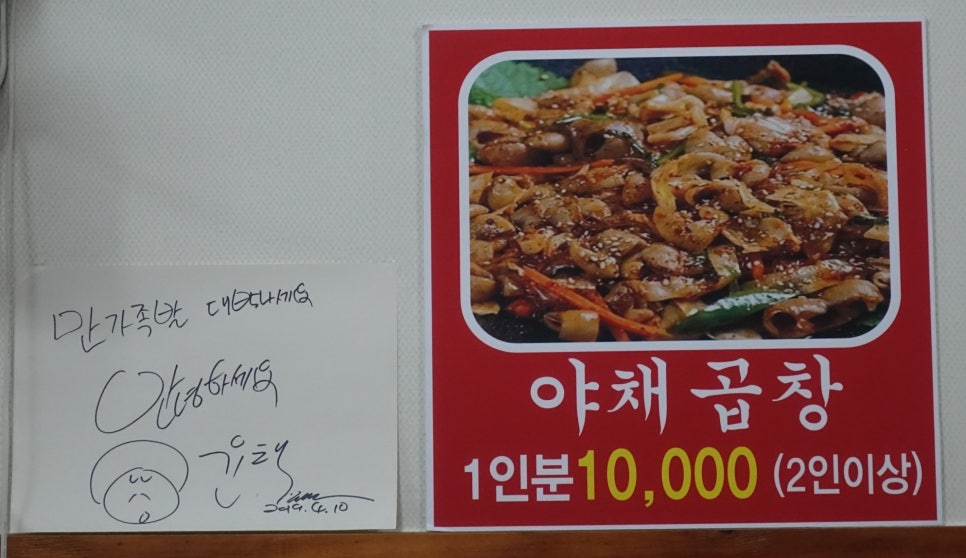 만가족발 대박나세요
안녕하세요
윤택
2019. 4. 10
야채 곱창
1인분 10,000 (2인이상)